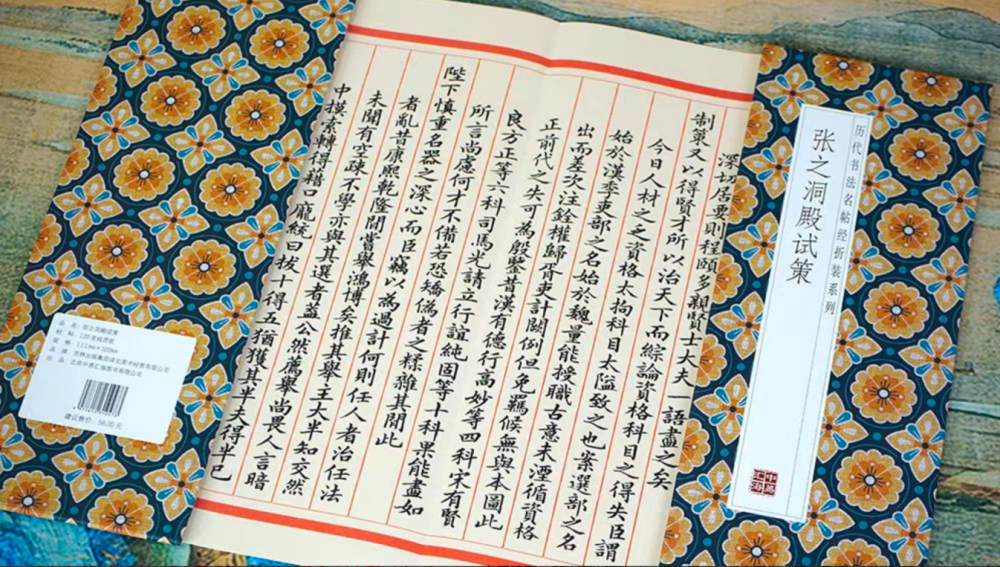 历代书法名帖经折装系列
张之洞殿试策
中易汇海
深切居要則程頤多親賢士大夫一語盡之矣
制策又以得賢才所以治天下而綜論資格科目之得失臣謂
今日人材之乏資格太拘科目太隘致之也案選部之名
始於漢季吏部之名始於魏量能授職古意未湮循資格
出而差次注銓權歸胥吏計闕例但免羈候無與本圖此
正前代之失可為殷鑒昔漢有德行高妙等四科宋有賢
良方正等六科司馬光請立行誼純固等十科果能盡如
所言尚慮何才不備若恐矯偽者之糅雜其間此
陛下慎重名器之深心而臣竊以為過計何則任人者治任法
者亂昔康熙乾隆間嘗舉鴻博矣推其舉主大半知交然
未聞有空疎不學亦與其選者蓋公然薦舉尚畏人言暗
中摸索轉得藉口龐統曰拔十得五猶獲其半夫得半已
品 名：张之洞殿试策
材 料：120克纯质纸
规 格：111mm×320mm
品 牌：吉林出版集团译文图书经营有限公司
出 品：北京中易汇海图书有限公司
建议售价：58.00元